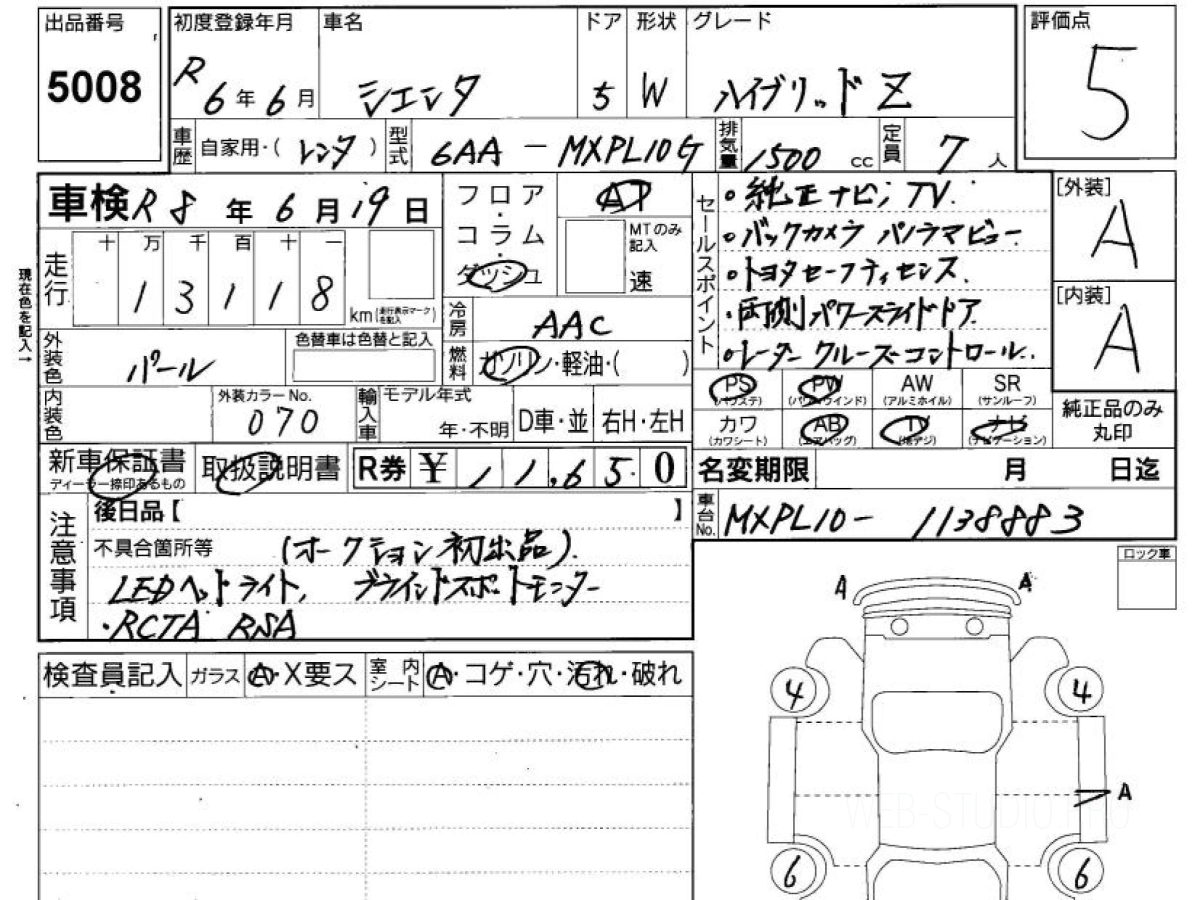 出品番号 初度登録年月 車名 ドア 形状 グレード 評価点
5008 R 6年 6月 シエンタ 5 W ハイブリッド Z 5
車歴 自家用・( レンタ ) 型式 6AA - MXPL10G 排気量 1500 cc 定員 7 人
車検 R 8 年 6 月 19 日 フロア・コラム・ダッシュ AT セールスポイント ・純正ナビ, TV. [外装] A
MTのみ記入 速 ・バックカメラ パノラマビュー
現在色を記入→ 走行 十 万 千 百 十 一 ・トヨタセーフティセンス.
1 3 1 1 8 km (走行表示マークを記入) 冷房 AAC ・両側パワースライドドア. [内装] A
外装色 パール 色替車は色替と記入 燃料 ガソリン・軽油・( ) ・レーダークルーズコントロール..
内装色 外装カラーNo. 070 輸入車 モデル年式 年・不明 D車・並 右H・左H
PS (パワステ) PW (パワーウインド) AW (アルミホイル) SR (サンルーフ) 純正品のみ丸印
カワ (カワシート) AB (エアバッグ) TV (地デジ) ナビ (ナビゲーション)
新車保証書 ディーラー捺印あるもの 取扱説明書 R券 ¥ 1 1,6 5 0 名変期限 月 日迄
注意事項 後日品【 】 車台No. MXPL10- 1138883
不具合箇所等 (オークション初出品). ロック車
LEDヘッドライト, ブラインドスポットモニター
・RCTA RSA
A A
検査員記入 ガラス A・X要ス 室内シート A・コゲ・穴・汚れ・破れ
4 4
A
WEB-STUDIO.PRO
6 6